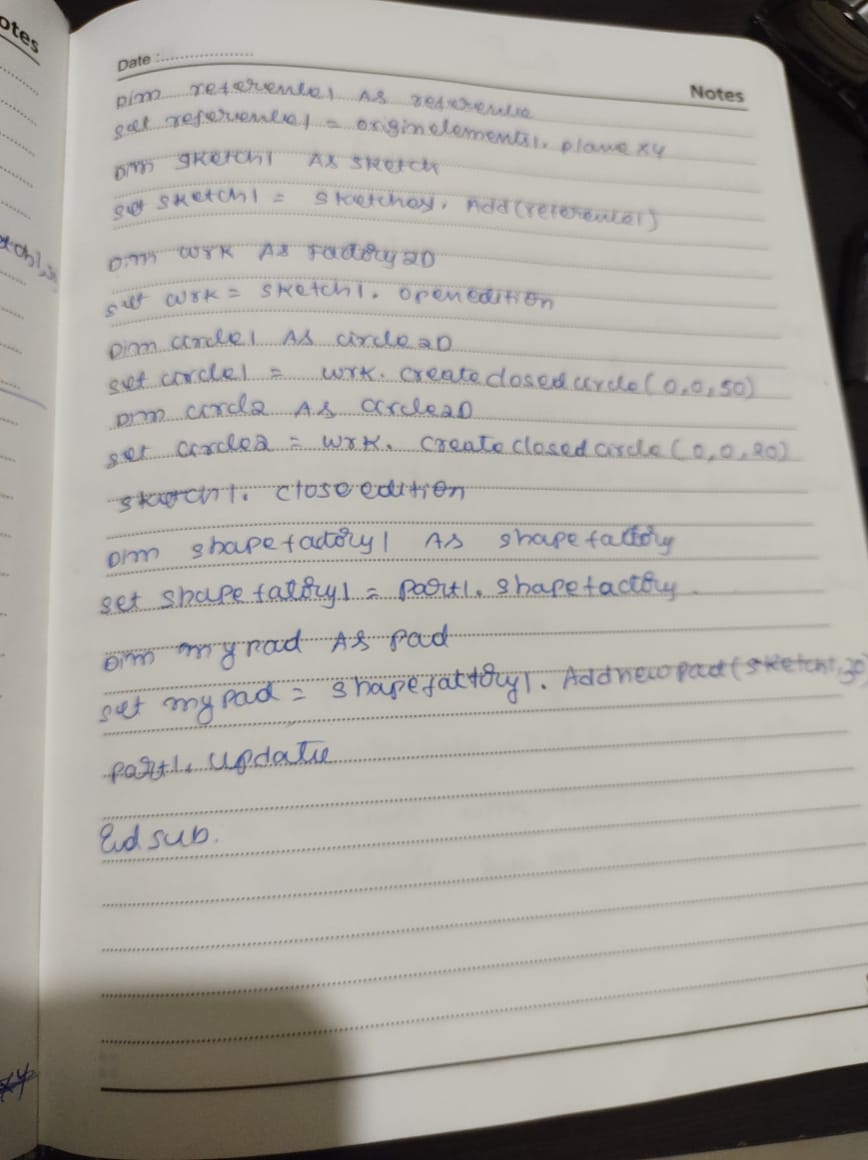 otes
Date :
Notes
Dim reference1 As reference
set reference1 = originelements1. plane xy
Dim sketch1 As sketch
set sketch1 = sketches. Add(reference1)
Dim wrk As Factory2D
set wrk = sketch1. openedition
Dim circle1 As circle2D
set circle1 = wrk. createclosedcircle(0,0,50)
Dim circl2 As circle2D
set circle2 = wrk. createclosedcircle(0,0,20)
sketch1. closeedition
Dim shapefactory1 As shapefactory
set shapefatory1 = part1. shapefactory
Dim mypad As pad
set mypad = shapefattory1. Addnewpad(sketch1,30)
part1. update
End sub.